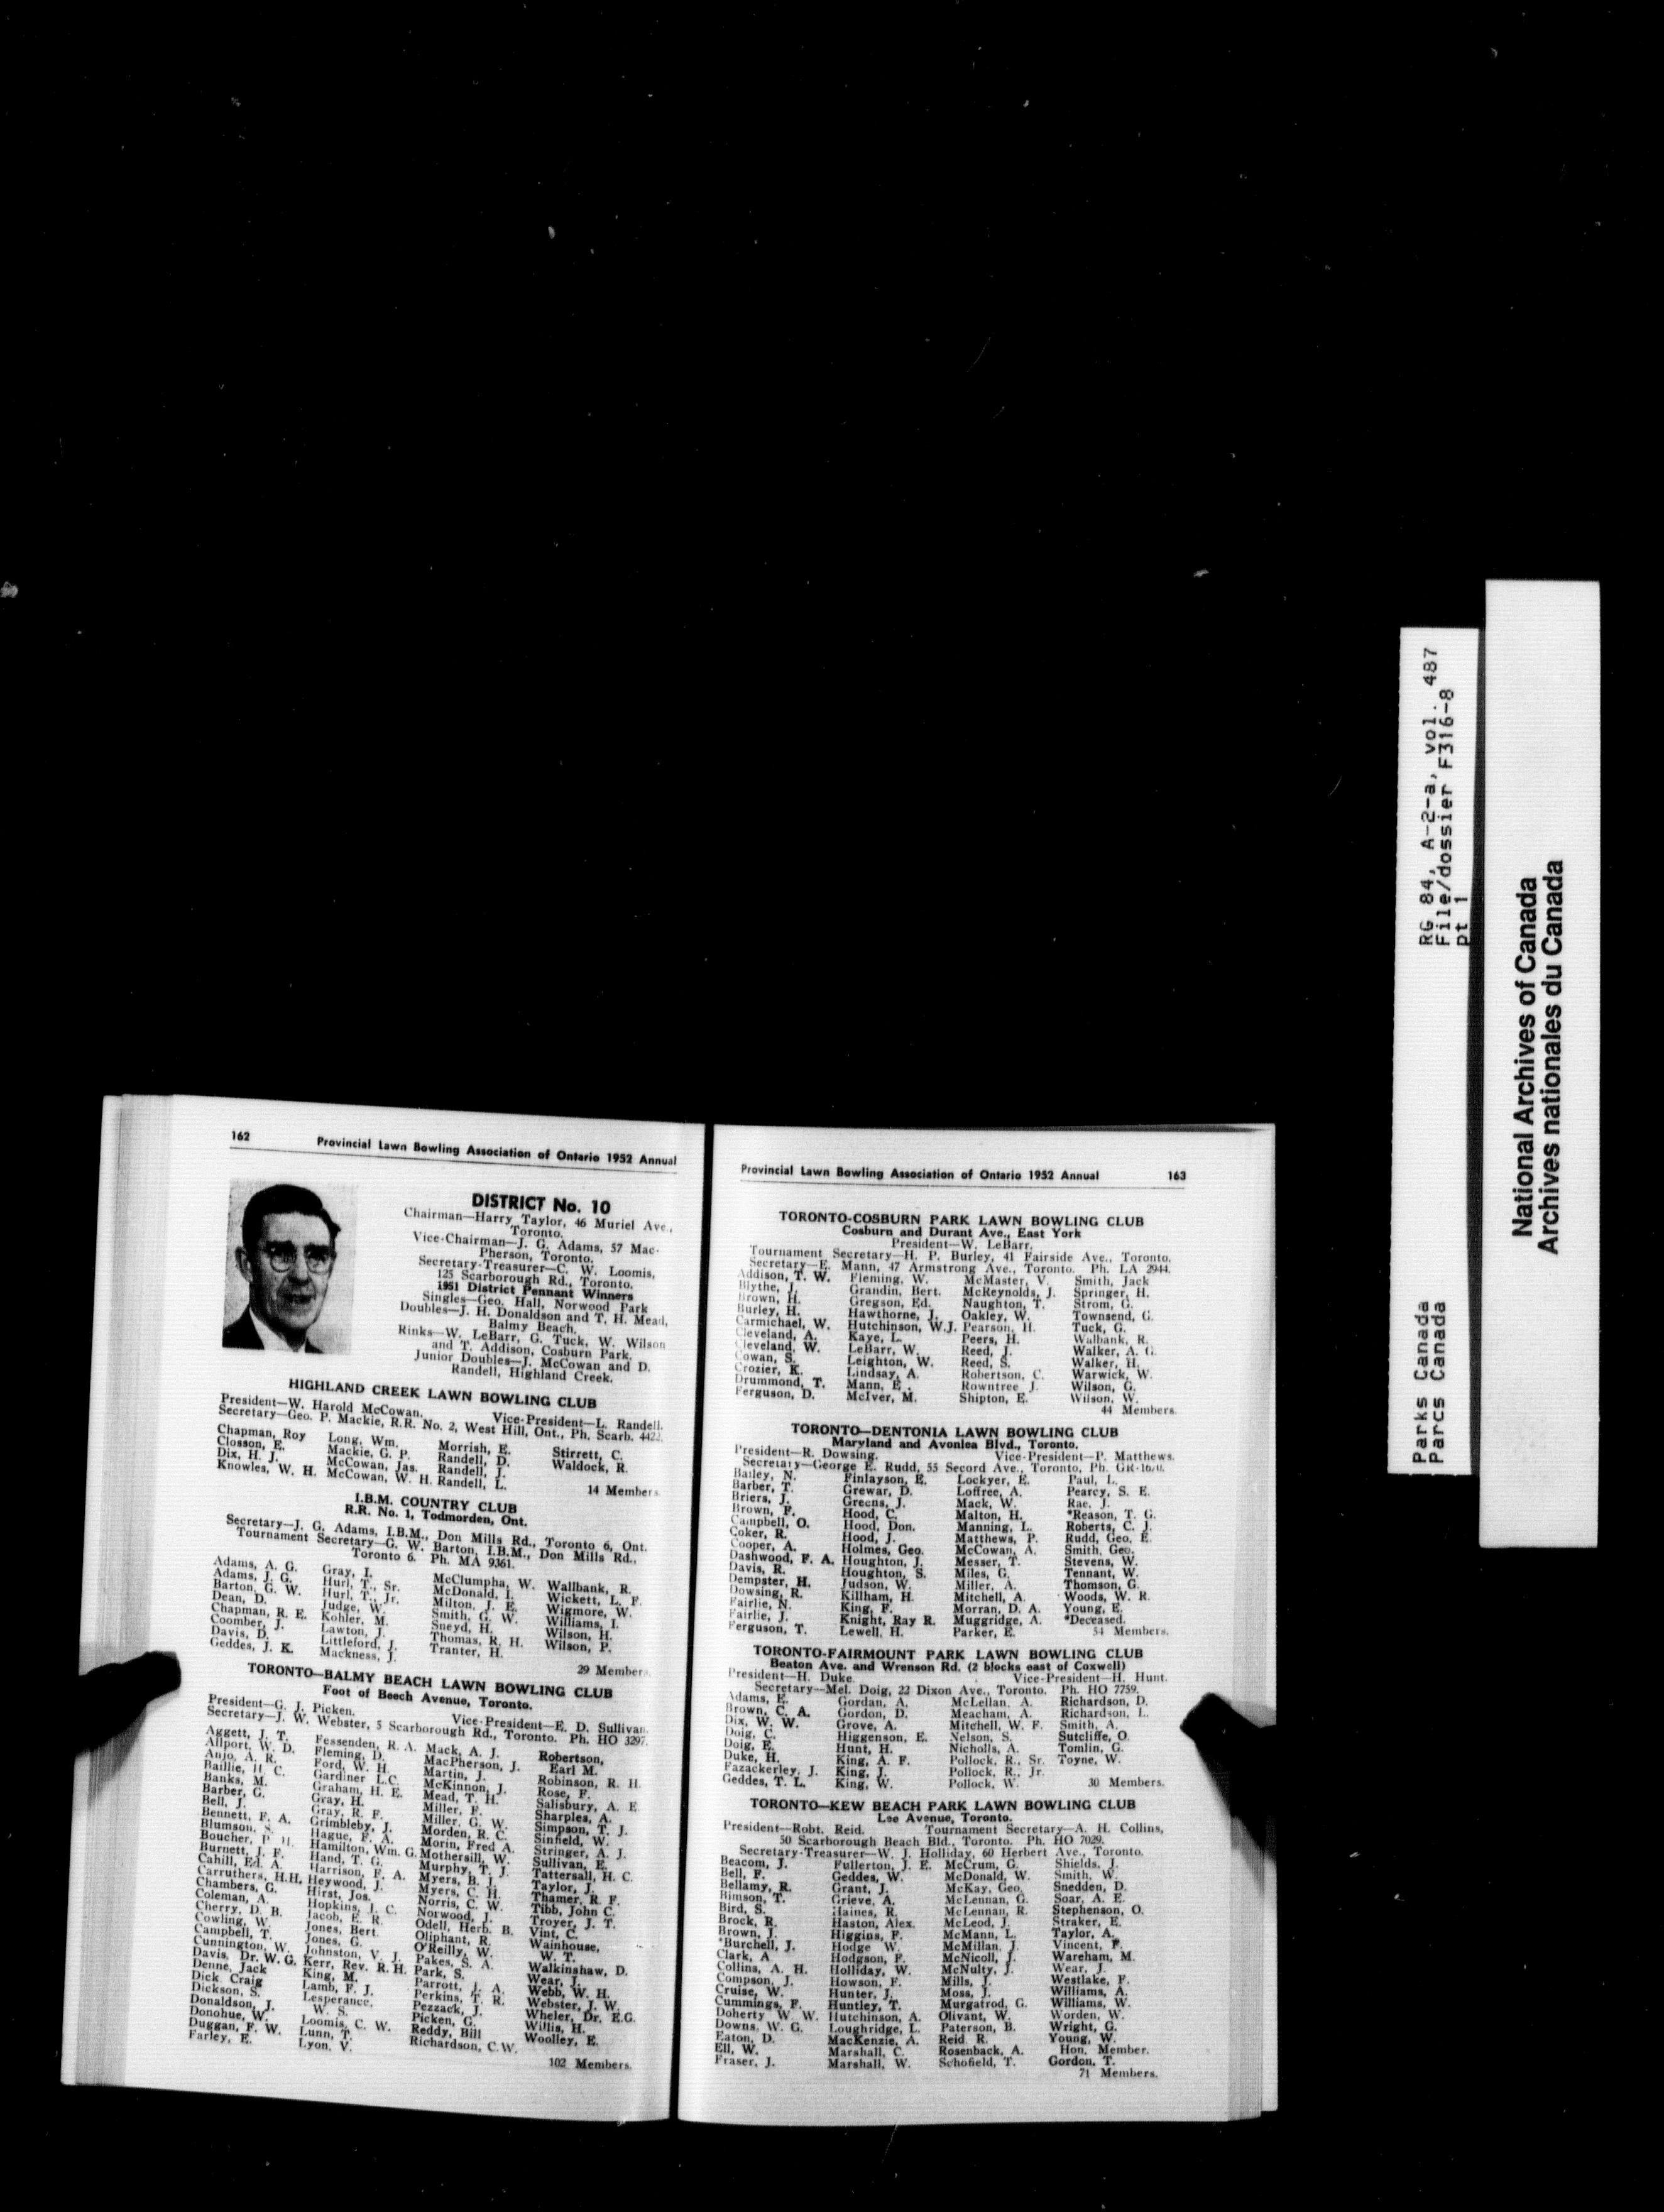 162 Provincial Lawn Bowling Association of Ontario 1952 Annual
DISTRICT No. 10
Chairman—Harry Taylor, 46 Muriel Ave.,
Toronto.
Vice-Chairman—J. G. Adams, 57 Mac-
Pherson, Toronto.
Secretary-Treasurer—C. W. Loomis,
125 Scarborough Rd., Toronto.
1951 District Pennant Winners
Singles—Geo. Hall, Norwood Park
Doubles—J. H. Donaldson and T. H. Mead,
Balmy Beach.
Rinks—W. LeBarr, G. Tuck, W. Wilson
and T. Addison, Cosburn Park.
Junior Doubles—J. McCowan and D.
Randell, Highland Creek.
HIGHLAND CREEK LAWN BOWLING CLUB
President—W. Harold McCowan. Vice-President—L. Randell.
Secretary—Geo. P. Mackie, R.R. No. 2, West Hill, Ont., Ph. Scarb. 4422.
Chapman, Roy Long, Wm. Morrish, E. Stirrett, C.
Closson, E. Mackie, G. P. Randell, D. Waldock, R.
Dix, H. J. McCowan, Jas. Randell, J.
Knowles, W. H. McCowan, W. H. Randell, L.
14 Members
I.B.M. COUNTRY CLUB
R.R. No. 1, Todmorden, Ont.
Secretary—J. G. Adams, I.B.M., Don Mills Rd., Toronto 6, Ont.
Tournament Secretary—G. W. Barton, I.B.M., Don Mills Rd.,
Toronto 6. Ph. MA 9361.
Adams, A. G. Gray, I. McClumpha, W. Wallbank, R.
Adams, J. G. Hurl, T., Sr. McDonald, I. Wickett, L. F.
Barton, G. W. Hurl, T., Jr. Milton, J. E. Wigmore, W.
Dean, D. Judge, W. Smith, G. W. Williams, I.
Chapman, R. E. Kohler, M. Sneyd, H. Wilson, H.
Coomber, J. Lawton, J. Thomas, R. H. Wilson, P.
Davis, D. Littleford, J. Tranter, H.
Geddes, J. K. Mackness, J.
29 Members
TORONTO—BALMY BEACH LAWN BOWLING CLUB
Foot of Beech Avenue, Toronto.
President—G. J. Picken. Vice-President—E. D. Sullivan.
Secretary—J. W. Webster, 5 Scarborough Rd., Toronto. Ph. HO 3297.
Aggett, J. T. Fessenden, R. A. Mack, A. J. Robertson,
Allport, W. D. Fleming, D. MacPherson, J. Earl M.
Anjo, A. R. Ford, W. H. Martin, J. Robinson, R. H.
Baillie, H. C. Gardiner L.C. McKinnon, J. Rose, F.
Banks, M. Graham, H. E. Mead, T. H. Salisbury, A. E.
Barber, G. Gray, H. Miller, F. Sharples, A.
Bell, J. Gray, R. F. Miller, G. W. Simpson, T. J.
Bennett, F. A. Grimbleby, J. Morden, R. C. Sinfield, W.
Blumson, S. Hague, F. A. Morin, Fred A. Stringer, A. J.
Boucher, P. H. Hamilton, Wm. G. Mothersill, W. Sullivan, E.
Burnett, J. F. Hand, T. G. Murphy, T. J. Tattersall, H. C.
Cahill, Ed. A. Harrison, F. A. Myers, B. J. Taylor, J.
Carruthers, H.H. Heywood, J. Myers, C. H. Thamer, R. F.
Chambers, G. Hirst, Jos. Norris, C. W. Tibb, John C.
Coleman, A. Hopkins, J. C. Norwood, J. Troyer, J. T.
Cherry, D. B. Jacob, E. R. Odell, Herb. B. Vint, C.
Cowling, W. Jones, Bert. Oliphant, R. Wainhouse,
Campbell, T. Jones, G. O'Reilly, W. W. T.
Cunnington, W. Johnston, V. J. Pakes, S. A. Walkinshaw, D.
Davis, Dr. W. G. Kerr, Rev. R. H. Park, S. Wear, J.
Denne, Jack King, M. Parrott, J. A. Webb, W. H.
Dick, Craig Lamb, F. J. Perkins, T. R. Webster, J. W.
Dickson, S. Lesperance, Pezzack, J. Wheler, Dr. E.G.
Donaldson, J. W. S. Picken, G. Willis, H.
Donohue, W. Loomis, C. W. Reddy, Bill Woolley, E.
Duggan, F. W. Lunn, T. Richardson, C.W.
Farley, E. Lyon, V.
102 Members.
Provincial Lawn Bowling Association of Ontario 1952 Annual 163
TORONTO-COSBURN PARK LAWN BOWLING CLUB
Cosburn and Durant Ave., East York
President—W. LeBarr.
Tournament Secretary—H. P. Burley, 41 Fairside Ave., Toronto.
Secretary—E. Mann, 47 Armstrong Ave., Toronto. Ph. LA 2944.
Addison, T. W. Fleming, W. McMaster, V. Smith, Jack
Blythe, J. Grandin, Bert. McReynolds, J. Springer, H.
Brown, H. Gregson, Ed. Naughton, T. Strom, G.
Burley, H. Hawthorne, J. Oakley, W. Townsend, G.
Carmichael, W. Hutchinson, W.J. Pearson, H. Tuck, G.
Cleveland, A. Kaye, L. Peers, H. Walbank, R.
Cleveland, W. LeBarr, W. Reed, J. Walker, A. G.
Cowan, S. Leighton, W. Reed, S. Walker, H.
Crozier, K. Lindsay, A. Robertson, C. Warwick, W.
Drummond, T. Mann, E. Rowntree J. Wilson, G.
Ferguson, D. McIver, M. Shipton, E. Wilson, W.
44 Members.
TORONTO—DENTONIA LAWN BOWLING CLUB
Maryland and Avonlea Blvd., Toronto.
President—R. Dowsing. Vice-President—P. Matthews.
Secretary—George E. Rudd, 55 Secord Ave., Toronto, Ph.
Bailey, N. Finlayson, E. Lockyer, E. Paul, L.
Barber, T. Grewar, D. Loffree, A. Pearcy, S. E.
Briers, J. Greens, J. Mack, W. Rae, J.
Brown, F. Hood, C. Malton, H. *Reason, T. G.
Campbell, O. Hood, Don. Manning, L. Roberts, C. J.
Coker, R. Hood, J. Matthews, P. Rudd, Geo. E.
Cooper, A. Holmes, Geo. McCowan, A. Smith, Geo.
Dashwood, F. A. Houghton, J. Messer, T. Stevens, W.
Davis, R. Houghton, S. Miles, G. Tennant, W.
Dempster, H. Judson, W. Miller, A. Thomson, G.
Dowsing, R. Killham, H. Mitchell, A. Woods, W. R.
Fairlie, N. King, F. Morran, D. A. Young, E.
Fairlie, J. Knight, Ray R. Muggridge, A. *Deceased.
Ferguson, T. Lewell, H. Parker, E. 54 Members.
TORONTO-FAIRMOUNT PARK LAWN BOWLING CLUB
Beaton Ave. and Wrenson Rd. (2 blocks east of Coxwell)
President—H. Duke. Vice-President—H. Hunt.
Secretary—Mel. Doig, 22 Dixon Ave., Toronto. Ph. HO 7759.
Adams, E. Gordan, A. McLellan, A. Richardson, D.
Brown, C. A. Gordon, D. Meacham, A. Richardson, L.
Dix, W. W. Grove, A. Mitchell, W. F. Smith, A.
Doig, C. Higgenson, E. Nelson, S. Sutcliffe, O.
Doig, E. Hunt, H. Nicholls, A. Tomlin, G.
Duke, H. King, A. F. Pollock, R., Sr. Toyne, W.
Fazackerley, J. King, J. Pollock, R., Jr.
Geddes, T. L. King, W. Pollock, W. 30 Members.
TORONTO—KEW BEACH PARK LAWN BOWLING CLUB
Lee Avenue, Toronto.
President—Robt. Reid. Tournament Secretary—A. H. Collins,
50 Scarborough Beach Bld., Toronto. Ph. HO 7029.
Secretary-Treasurer—W. J. Holliday, 60 Herbert Ave., Toronto.
Beacom, J. Fullerton, J. E. McCrum, G. Shields, J.
Bell, F. Geddes, W. McDonald, W. Smith, W.
Bellamy, R. Grant, J. McKay, Geo. Snedden, D.
Bimson, T. Grieve, A. McLennan, G. Soar, A. E.
Bird, S. Haines, R. McLennan, R. Stephenson, O.
Brock, R. Haston, Alex. McLeod, J. Straker, E.
Brown, J. Higgins, F. McMann, L. Taylor, A.
*Burchell, J. Hodge W. McMillan, J. Vincent, F.
Clark, A Hodgson, F. McNicoll, J. Wareham, M.
Collins, A. H. Holliday, W. McNulty, J. Wear, J.
Compson, J. Howson, F. Mills, J. Westlake, F.
Cruise, W. Hunter, J. Moss, J. Williams, A.
Cummings, F. Huntley, T. Murgatrod, G. Williams, W.
Doherty W. W. Hutchinson, A. Olivant, W. Worden, W.
Downs, W. G. Loughridge, L. Paterson, B. Wright, G.
Eaton, D. MacKenzie, A. Reid R. Young, W.
Ell, W. Marshall, C. Rosenback, A. Hon. Member.
Fraser, J. Marshall, W. Schofield, T. Gordon, T.
71 Members.
RG 84, A-2-a, vol. 487
File/dossier F316-8
pt 1
Parks Canada
Parcs Canada
National Archives of Canada
Archives nationales du Canada